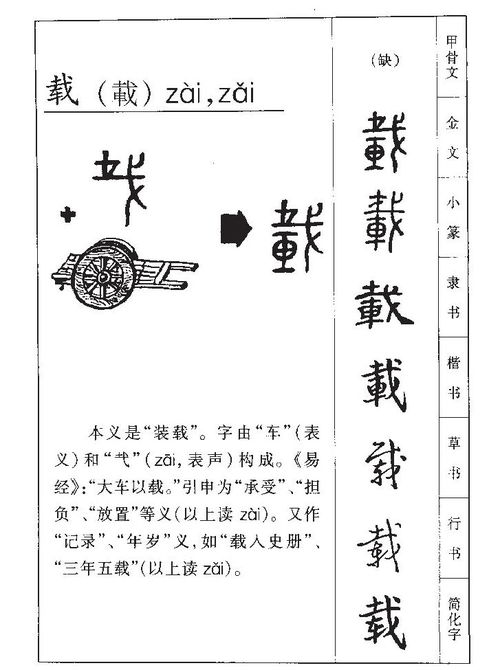 载（載）zài,zǎi
本义是“装载”。字由“车”(表
义)和“𢦏”(zāi,表声)构成。《易
经》:“大车以载。”引申为“承受”、“担
负”、“放置”等义(以上读 zài)。又作
“记录”、“年岁”义,如“载入史册”、
“三年五载”(以上读 zǎi)。
甲骨文
（缺）
金文
載
小篆
載
隶书
載
楷书
載
草书
载
行书
載
简化字
载